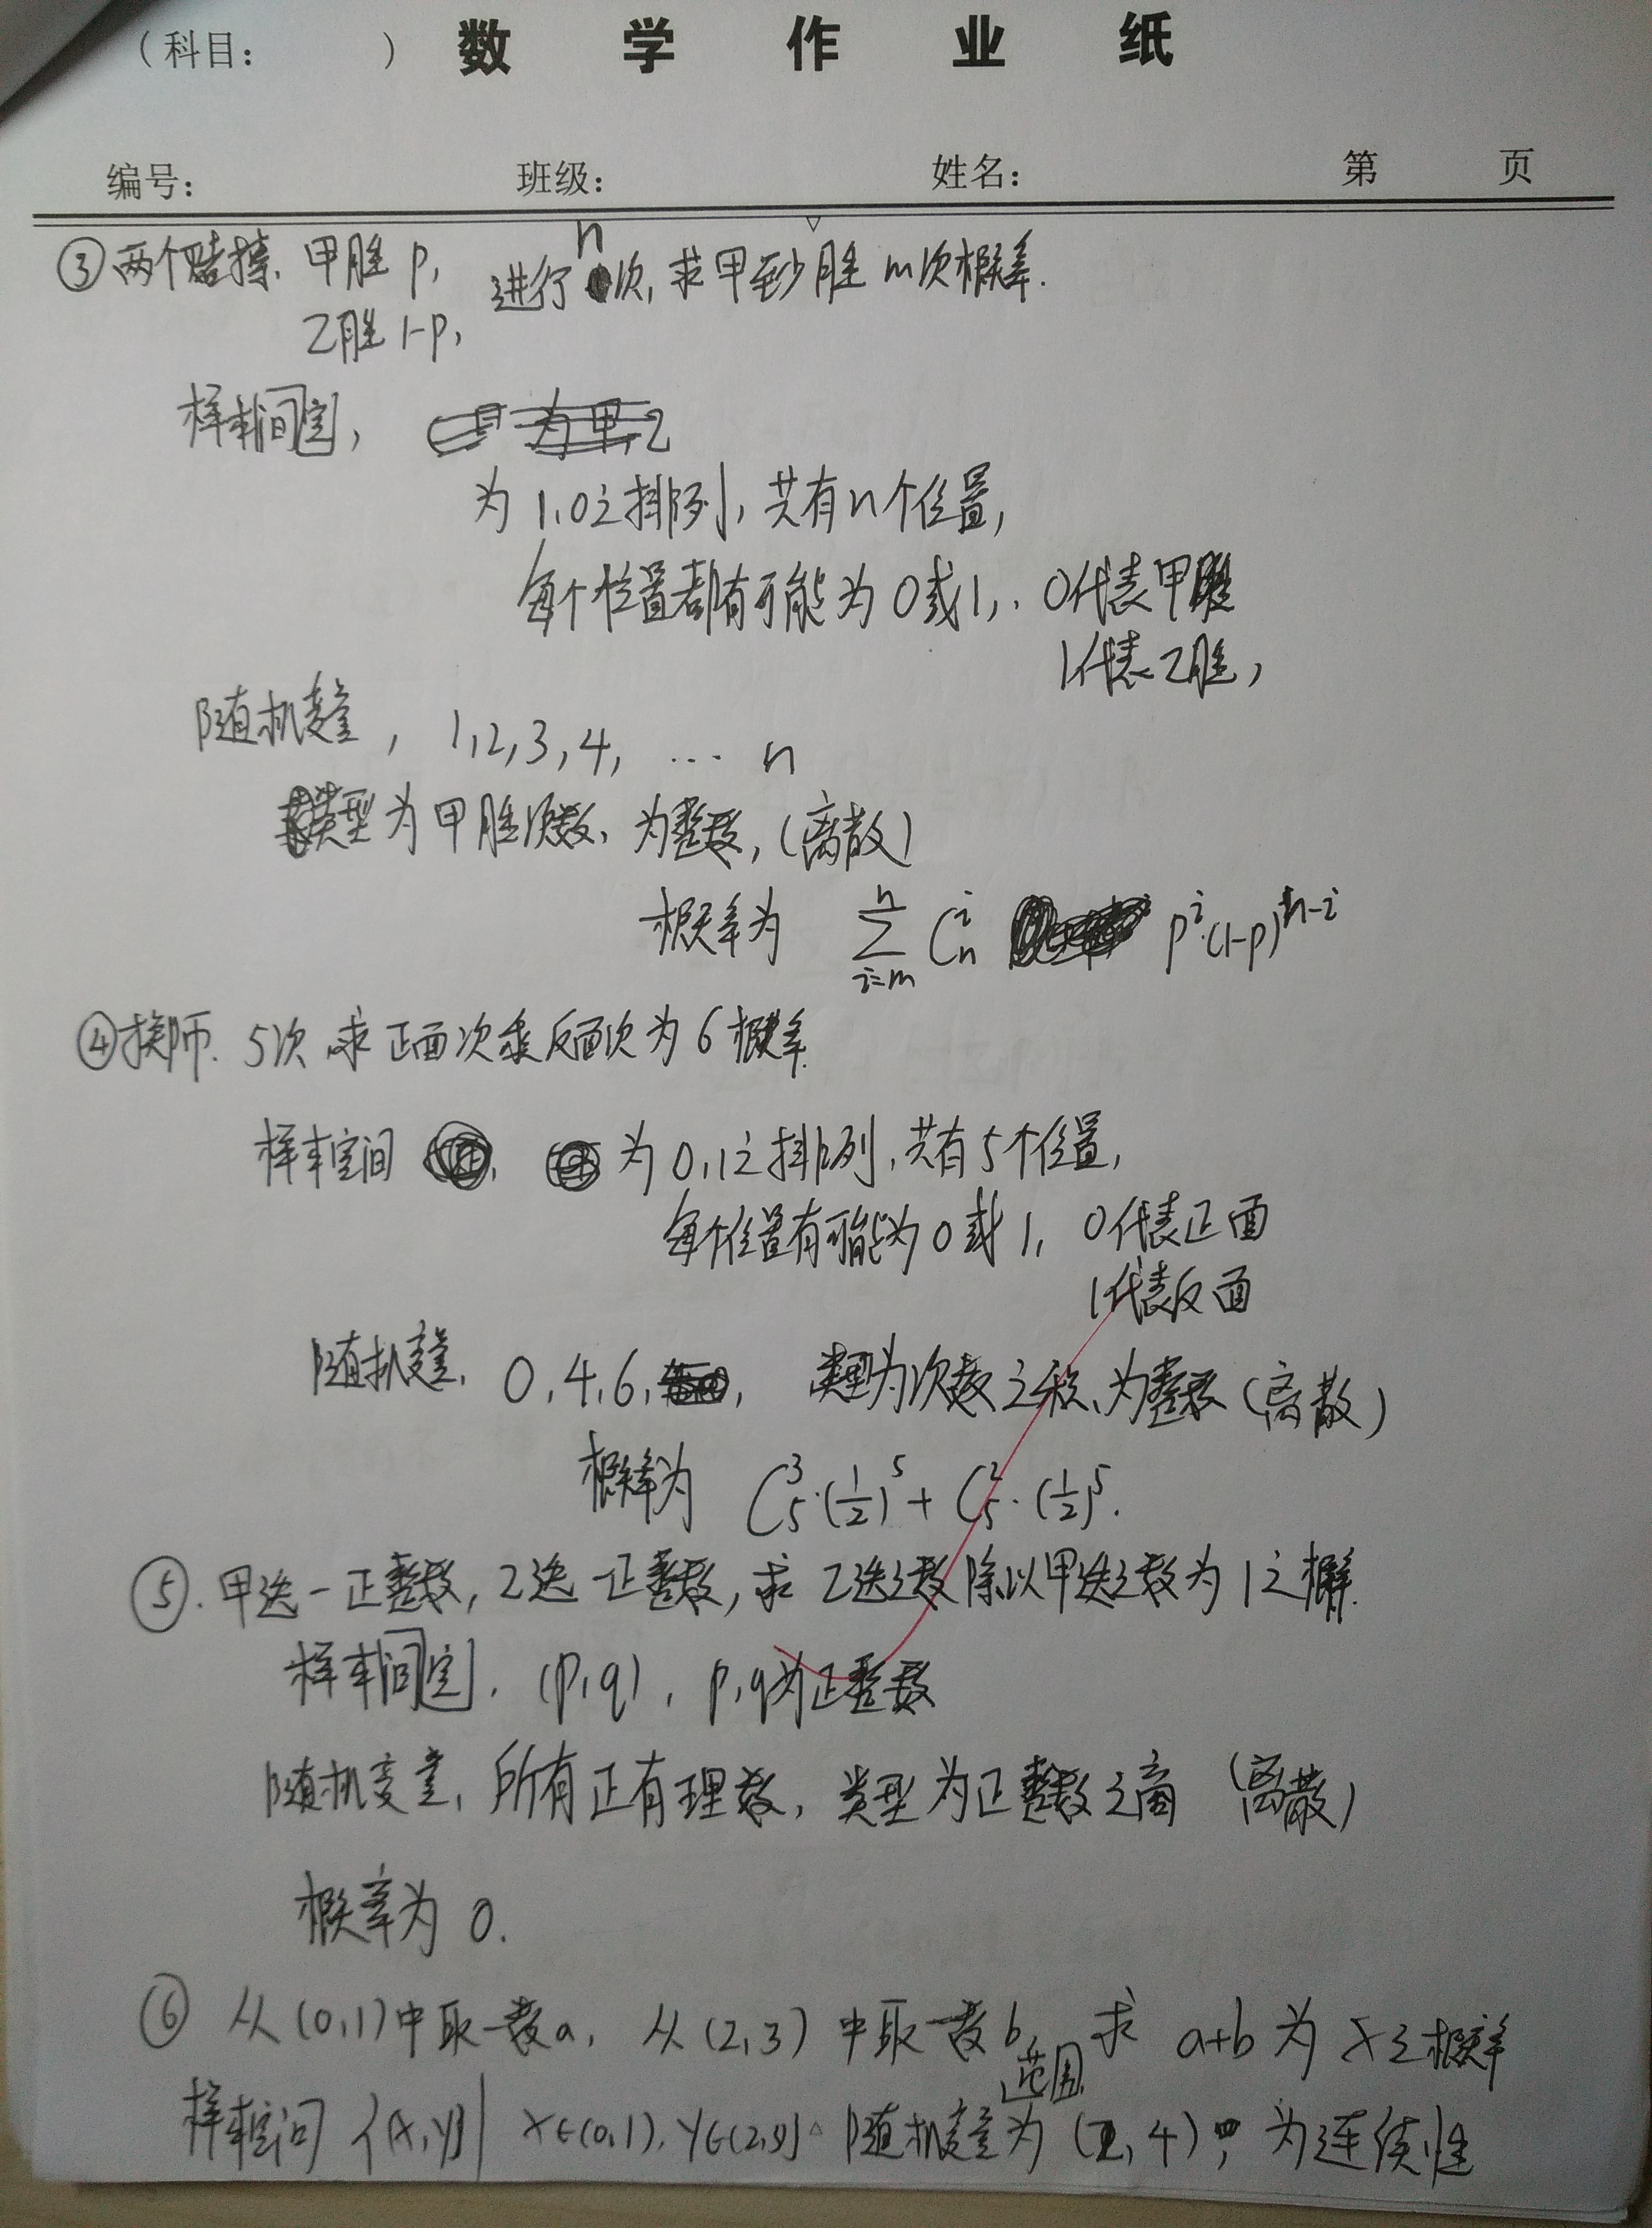 （科目： ） 数学作业纸
编号： 班级： 姓名： 第 页
③两个赌摊. 甲胜 p, 进行 n 次, 求甲至少胜 m次概率.
乙胜 1-p,
样本空间,
为 1,0之排列, 共有n个位置,
每个位置都有可能为 0或1, 0代表甲胜
1代表乙胜,
随机变量, 1,2,3,4, … n
类型为甲胜次数, 为整数, (离散)
概率为 \sum_{i=m}^{n} C_n^i p^i·(1-p)^{n-i}
④掷币. 5次 求正面次乘反面次为6概率.
样本空间 为 0,1之排列, 共有5个位置,
每个位置有可能为 0或 1, 0代表正面
1代表反面
随机变量, 0,4,6, 类型为次数之积、为整数 (离散)
概率为 C_5^3·(1/2)^5 + C_5^2·(1/2)^5.
⑤. 甲选一正整数, 乙选一正整数, 求乙选之数除以甲选之数为1之概率.
样本空间. (p,q), p,q为正整数
随机变量, 所有正有理数, 类型为正整数之商 (离散)
概率为 0.
⑥ 从(0,1)中取一数a, 从(2,3)中取一数b, 求 a+b 为 x之概率
样本空间 {(x,y)| x∈(0,1), y∈(2,3)} 随机变量范围为 (2,4), 为连续性